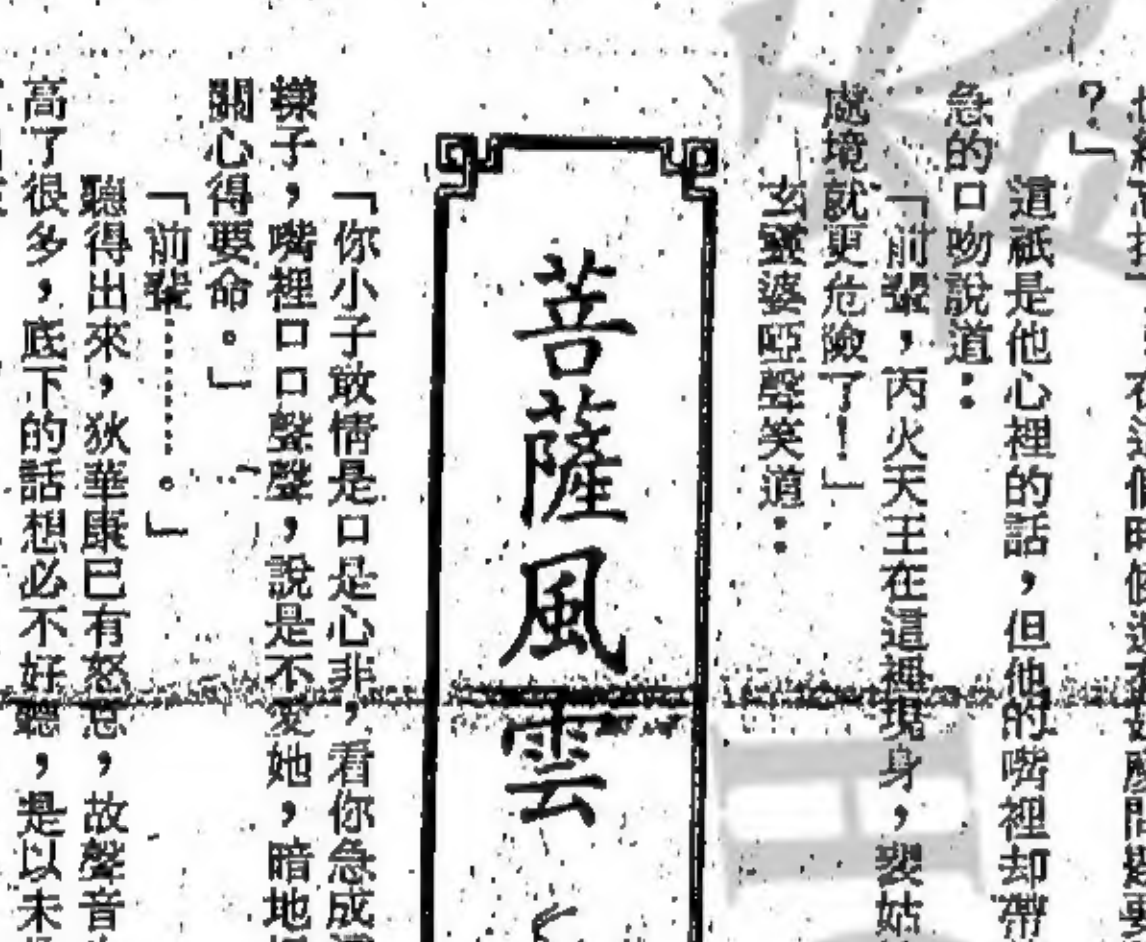 ？」
這祇是他心裡的話，但他的嘴裡却帶
急的口吻說道：
「前輩，丙火天王在這裡現身，裴姑
處境就更危險了！」
玄靈婆啞聲笑道：
菩薩風雲
「你小子敢情是口是心非，看你急成這
樣子，嘴裡口口聲聲，說是不愛她，暗地
關心得要命。」
「前輩………。」
聽得出來，狄華康已有怒意，故聲音
高了很多，底下的話想必不好聽，是以未